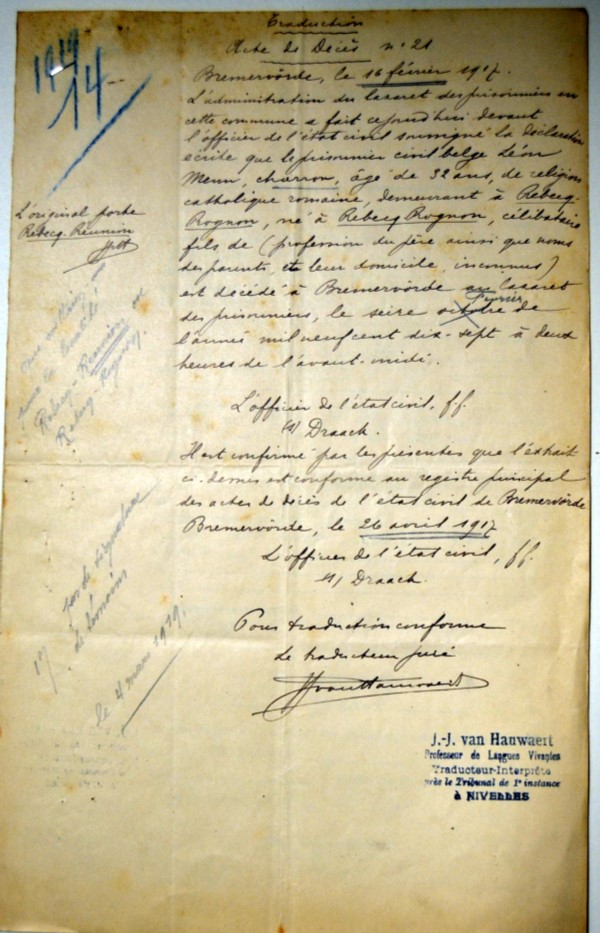 Traduction
Acte de Décès n° 21
1919
14
Bremervörde, le 16 février 1917.
L'administration du lazaret des prisonniers en
cette commune a fait ce jourd'hui devant
l'officier de l'état civil soussigné la déclaration
écrite que le prisonnier civil belge Léon
Menu, charron, âgé de 32 ans, de religion
catholique romaine, demeurant à Rebecq-
Rognon, né à Rebecq Rognon, célibataire
fils de (profession du père ainsi que noms
des parents, et leur domicile, inconnus)
est décédé à Bremervörde au lazaret
des prisonniers, le seize octobre février de
l'année mil neuf cent dix-sept à deux
heures de l'avant-midi.
L'original porte
Rebecq-Reunion
Rebecq-Reunion ou
Rebecq-Rognon.
L'officier de l'état civil, f.f.
(s) Draack.
Il est confirmé par les présentes que l'extrait
ci-dessus est conforme au registre principal
des actes de décès de l'état civil de Bremervörde
Bremervörde, le 26 avril 1917
L'officier de l'état civil, ff.
(s) Draack.
pas de signature
de témoins
le 4 mars 1919.
Pour traduction conforme
Le traducteur juré
J.-J. van Hauwaert
Professeur de Langues Vivantes
Traducteur-Interprète
près le Tribunal de 1e instance
à NIVELLES